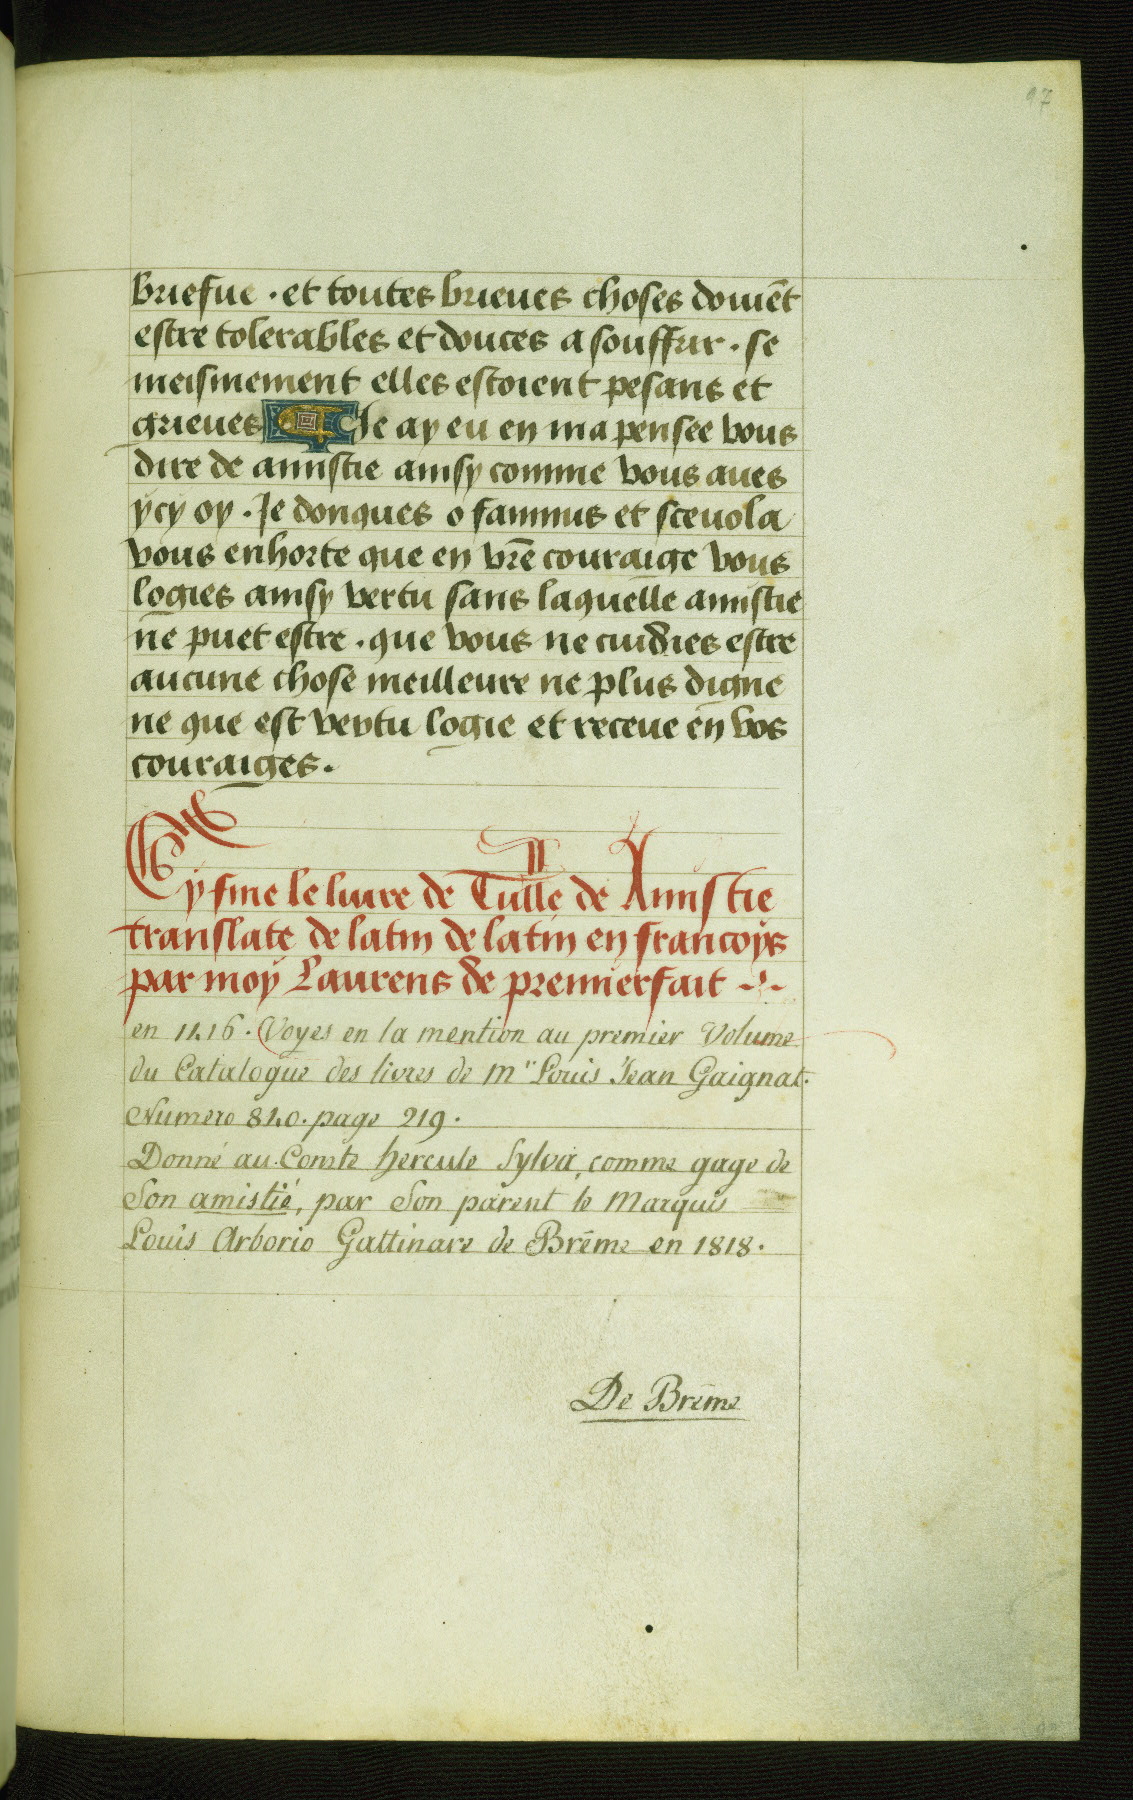 97
briefue · et toutes brieues choses doiuēt
estre tolerables et douces a souffrir · se
meismement elles estoient pesans et
grieues Je ay eu en ma pensee vous
dire de amistie ainsy comme vous aues
ycy oy · Je donques o fannius et sceuola
vous enhorte que en vr̄e couraige vous
logies ainsy vertu sans laquelle amistie
ne puet estre · que vous ne cuidies estre
aucune chose meilleure ne plus digne
ne que est vertu logie et receue en vos
couraiges ·
Cy fine le liure de Tulle de Amistie
translate de latin de latin en francoys
par moy Laurens de premierfait
en 1416. Voyes en la mention au premier Volume
du Catalogue des livres de Mr. Louis Jean Gaignat.
Numero 840. page 219.
Donné au Comte hercule Sylva, comme gage de
Son amistié, par Son parent le Marquis
Louis Arborio Gattinare de Brême en 1818.
De Brême